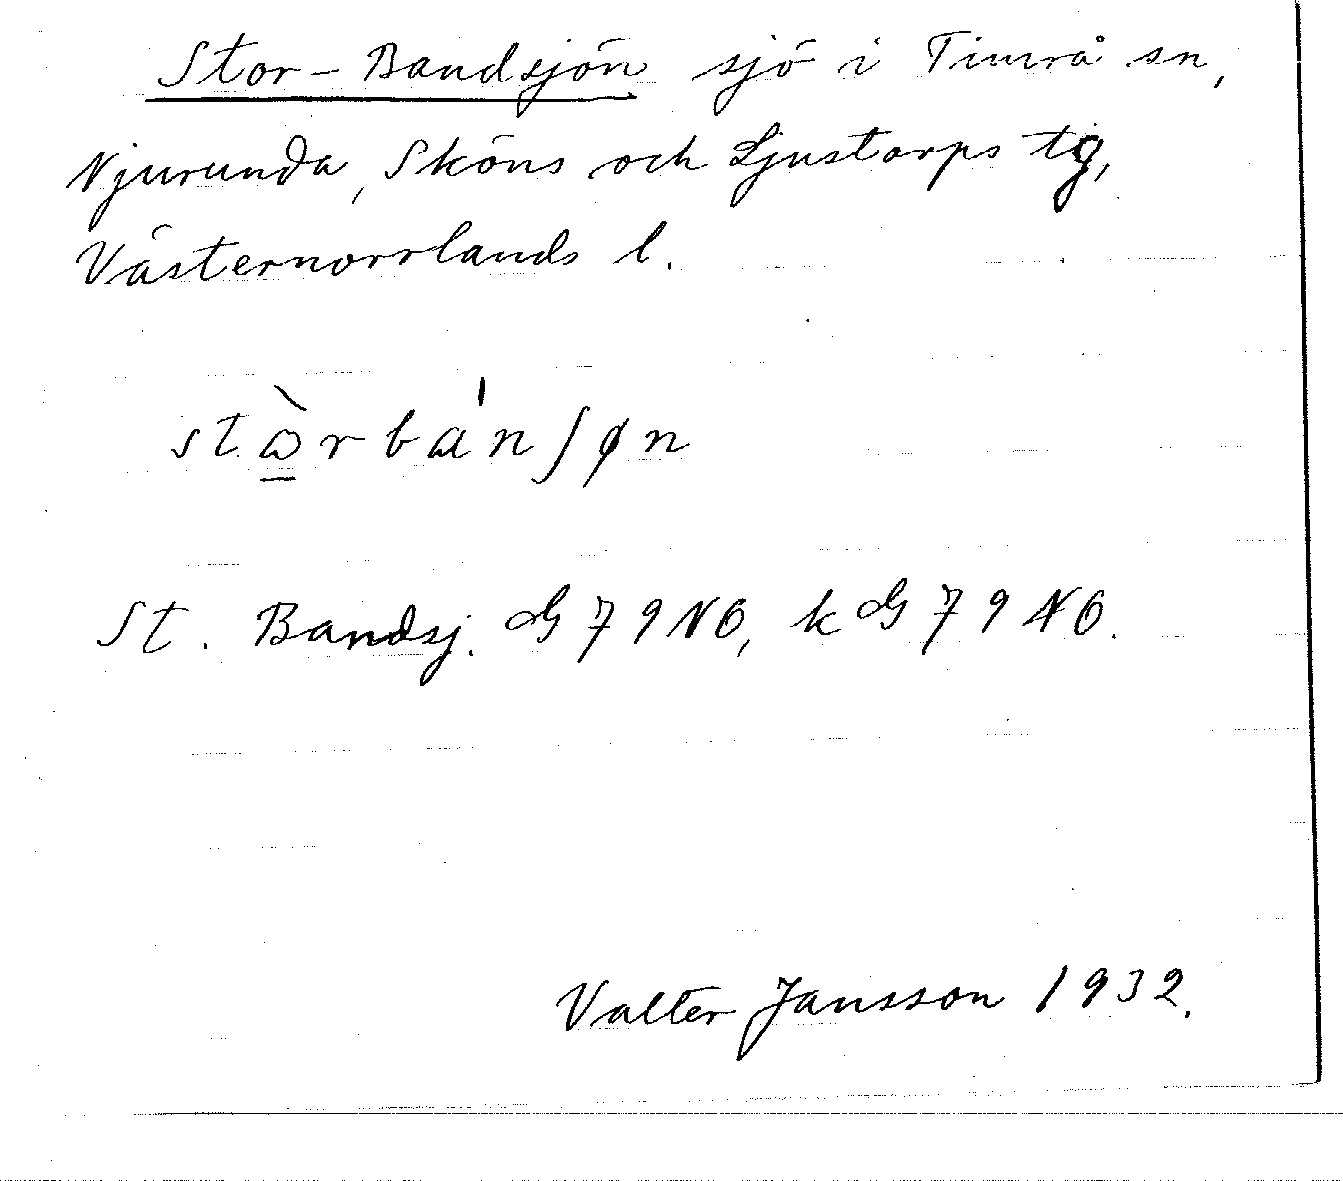 Stor-Bandsjön sjö i Timrå sn,
Njurunda, Sköns och Ljustorps tg,
Västernorrlands l.
stɷ̠̀rbα'nʃøn
St. Bandsj. G 79 NO, k G 79 NO.
Valter Jansson 1932.